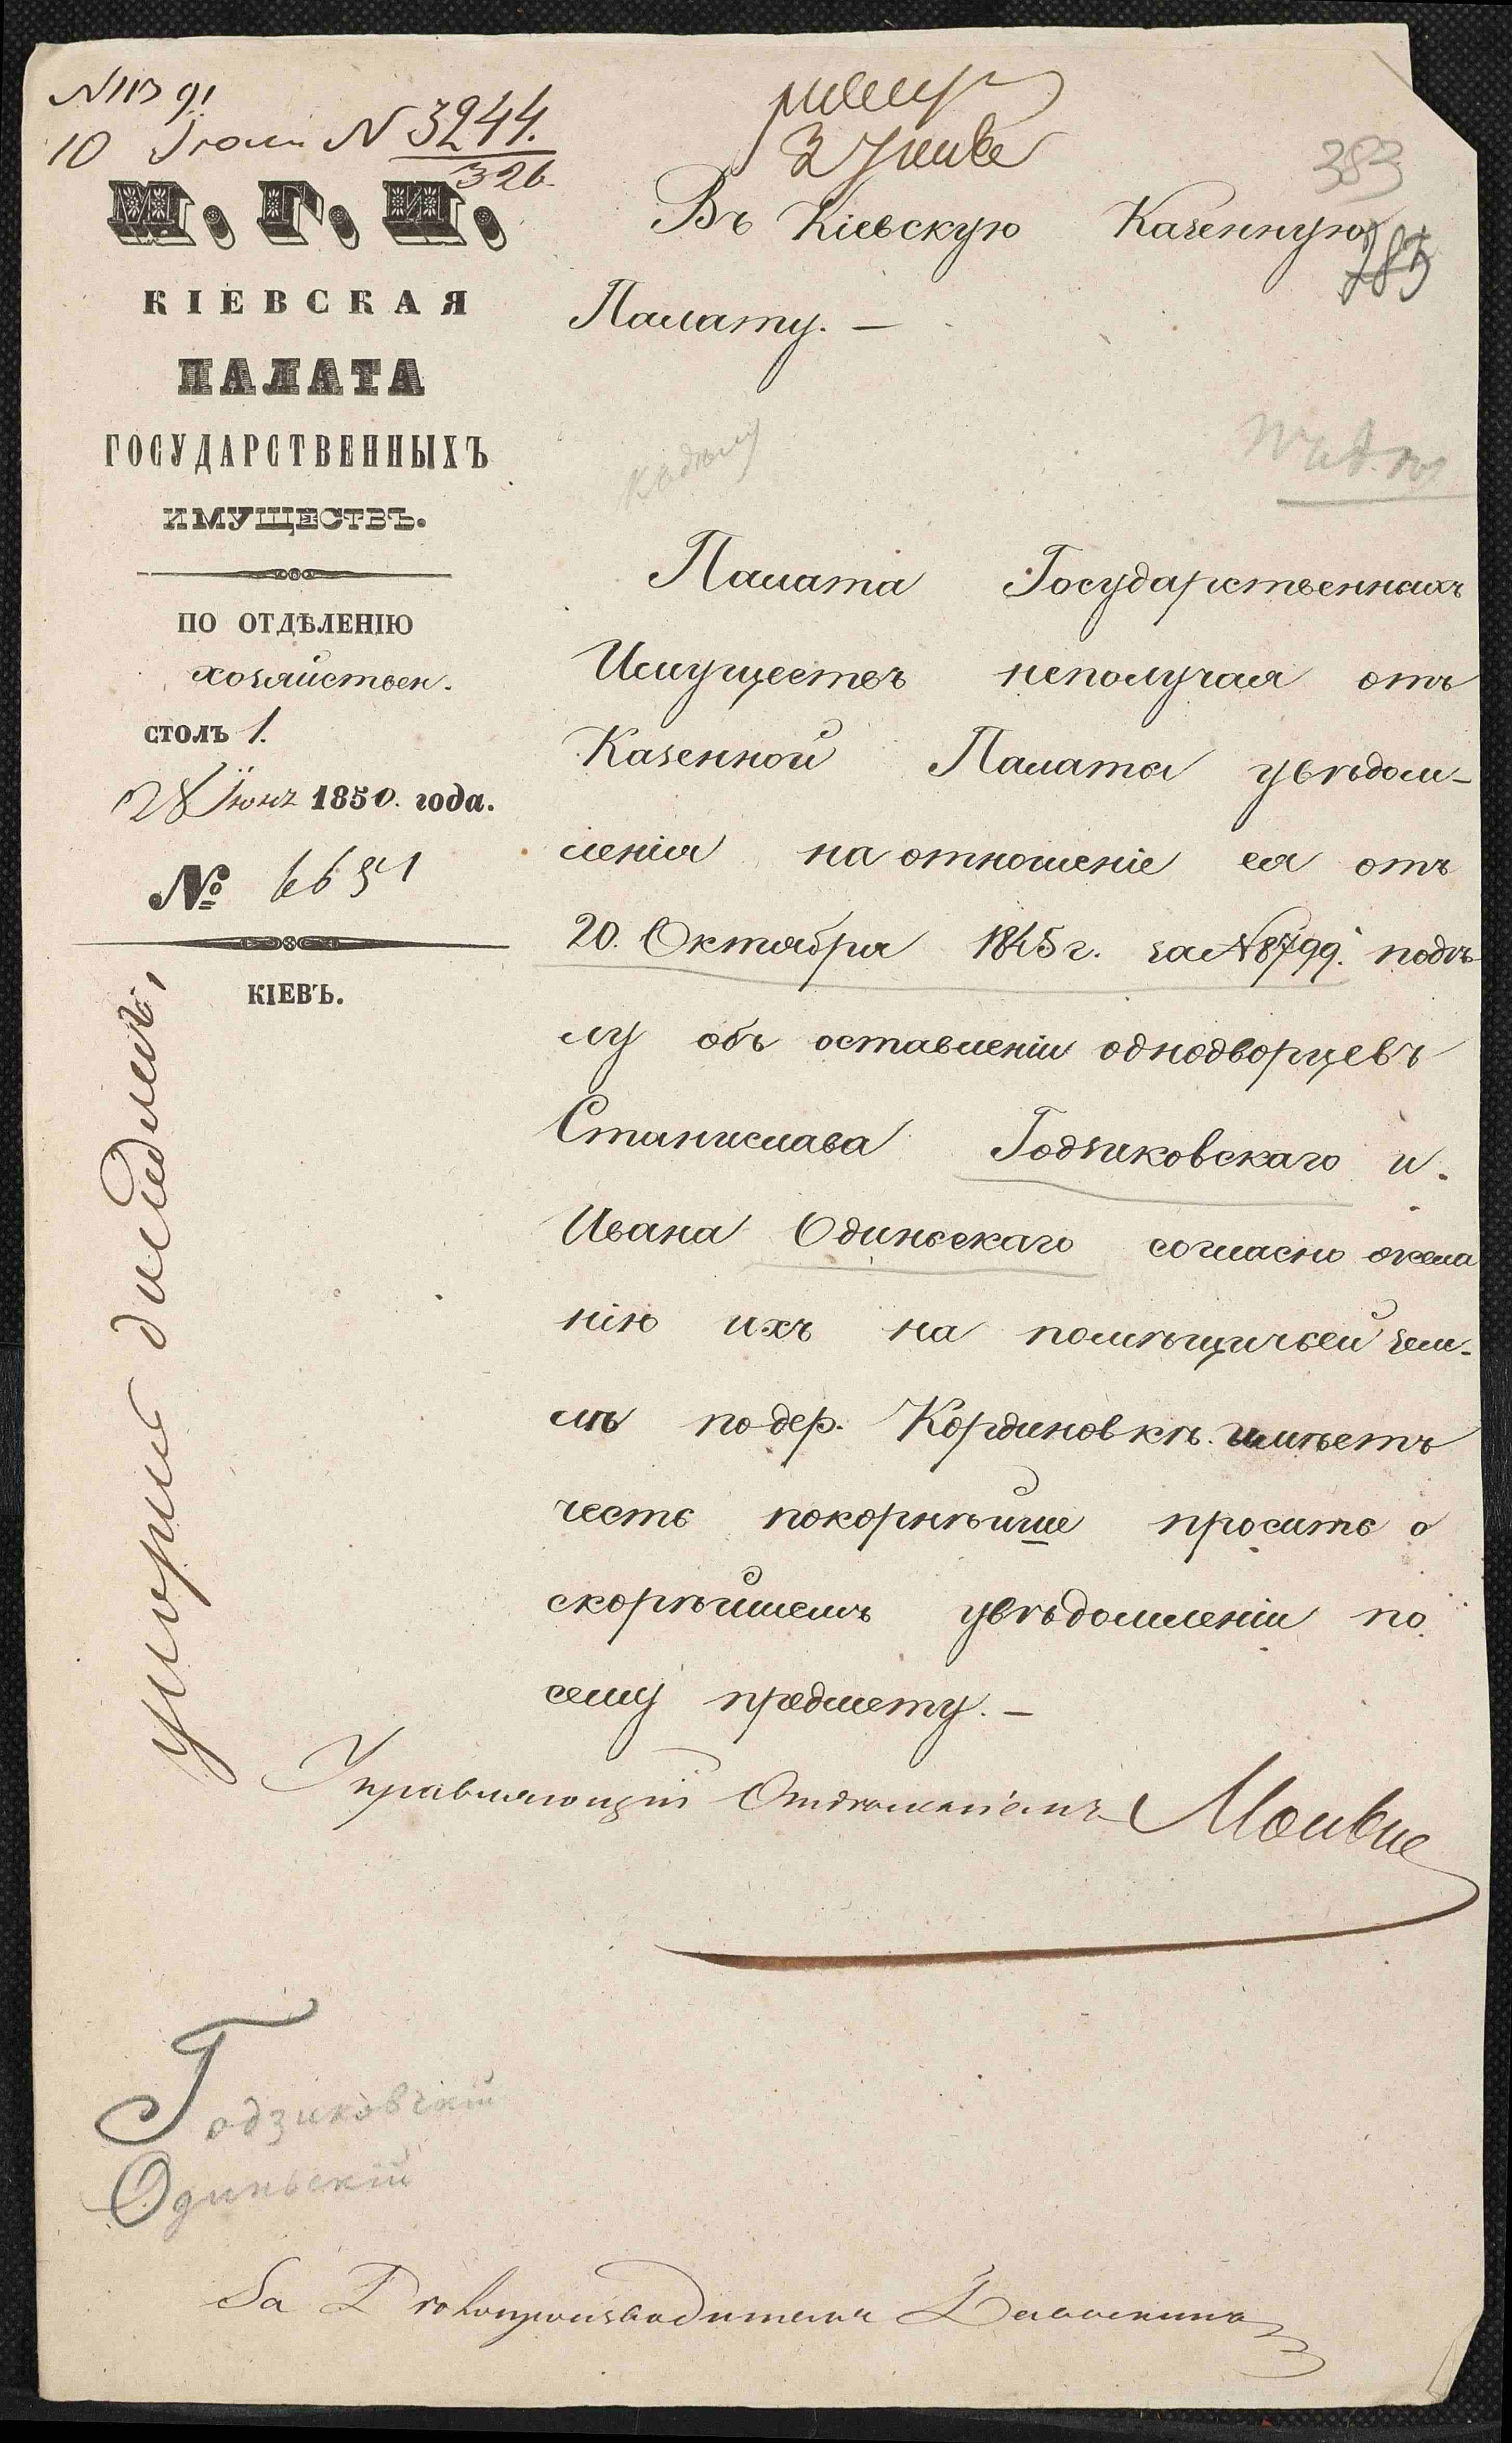 10 Іюля N 3244.
326.
М. Г. И.
КІЕВСКАЯ
ПАЛАТА
ГОСУДАРСТВЕННЫХЪ
ИМУЩЕСТВЪ.
ПО ОТДѢЛЕНІЮ
хозяйствен.
СТОЛЪ 1.
28 Іюня 1850. года.
№ 6651
КІЕВЪ.
383
Въ Кіевскую Казенную
Палату. —
къ дѣлу
Палата Государственныхъ
Имуществъ неполучая отъ
Казенной Палаты увѣдом-
ленія на отношеніе ея отъ
20. Октября 1845 г. за № 8799. подѣ-
лу объ оставленіи однодворцевъ
Станислава Годзиковскаго и
Ивана Одинскаго согласно жела
нію ихъ на помѣщичьей зем-
лѣ по дер. Кординовкѣ. имѣетъ
честь покорнѣйше просить о
скорѣйшемъ увѣдомленіи по
сему предмету. —
Управляющій Отдѣленіемъ
Годзиковскій
Одиньскій
За Дѣлопроизводителя